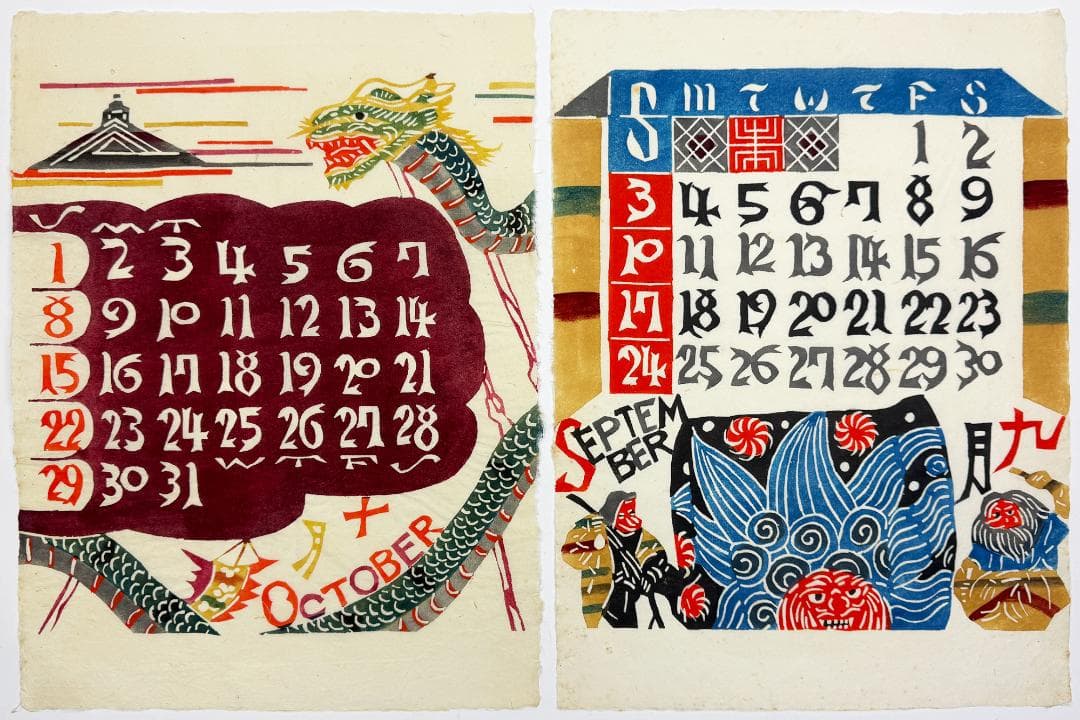 S M T
1 2 3 4 5 6 7
8 9 10 11 12 13 14
15 16 17 18 19 20 21
22 23 24 25 26 27 28
29 30 31 W T F S
十月
OCTOBER
S M T W T F S
1 2
3 4 5 6 7 8 9
10 11 12 13 14 15 16
17 18 19 20 21 22 23
24 25 26 27 28 29 30
SEPTEM
BER
九月